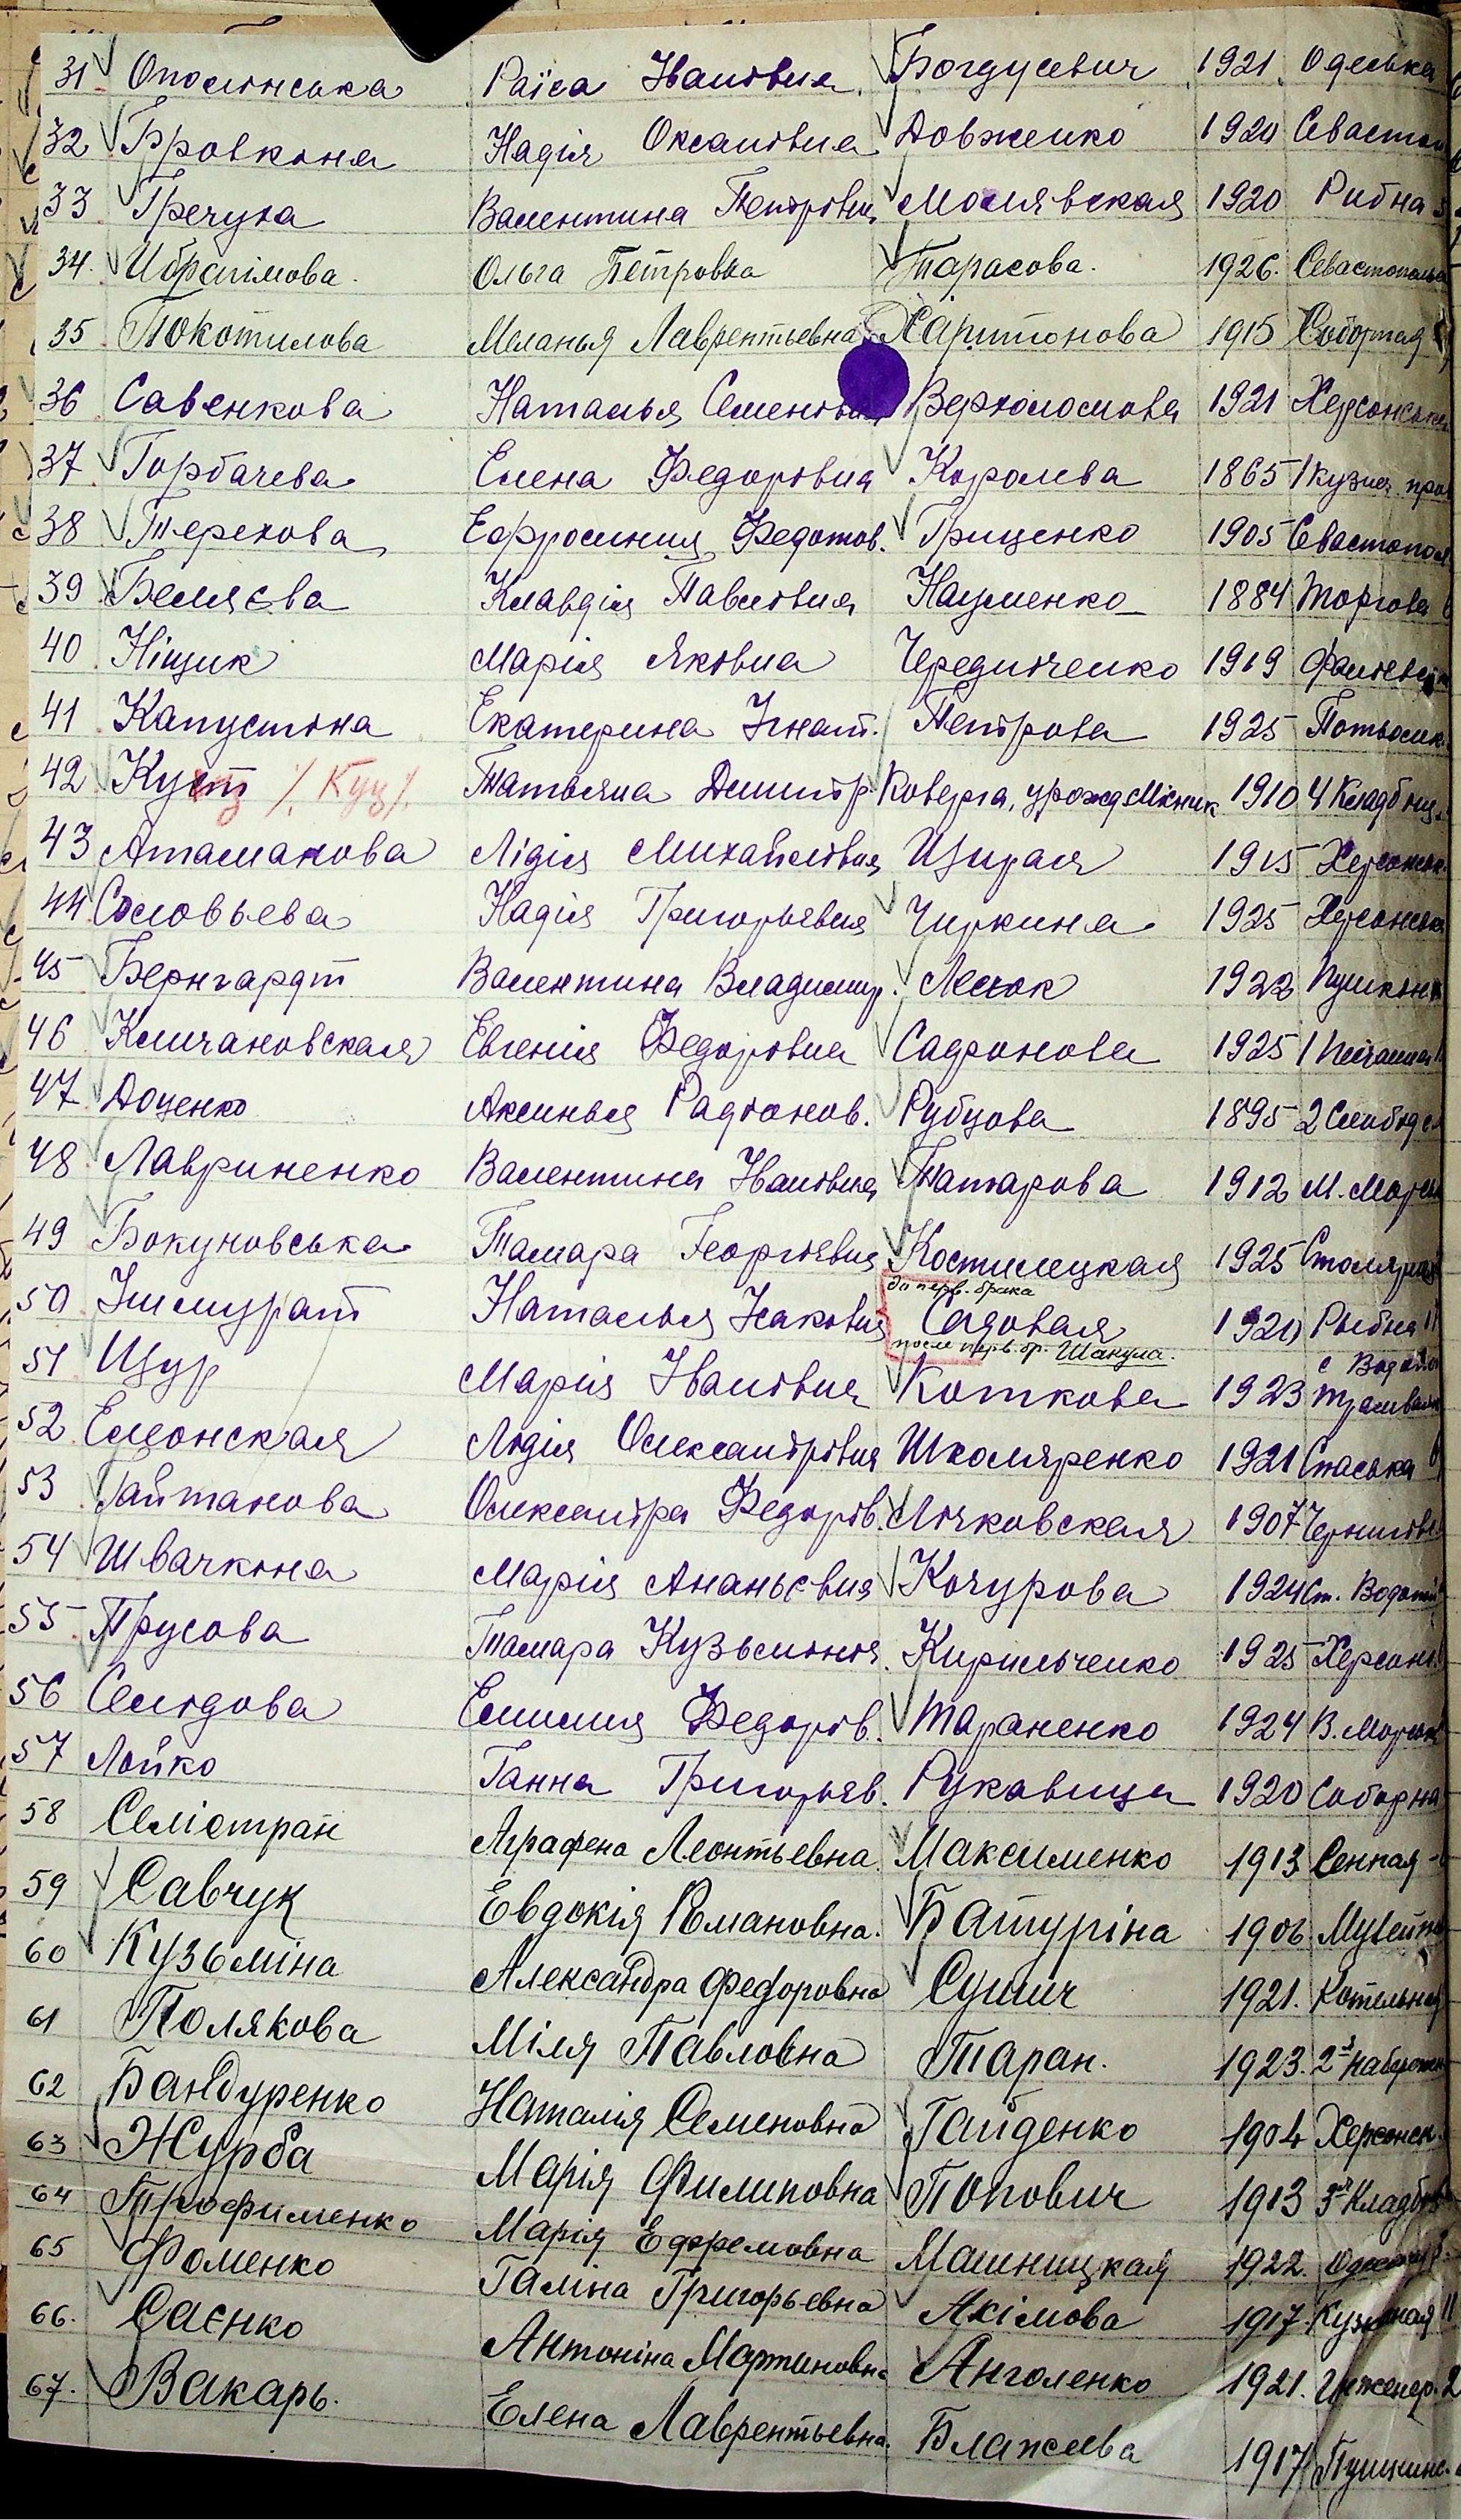 31 Ополінська Раїса Іванівна Богдусевич 1921 Одеська
32 Бровкіна Надія Оксанівна Довженко 1920 Севастоп
33 Гречуха Валентина Петрівна Молявская 1920 Рибна
34. Ибрагімова. Ольга Петровна Тарасова. 1926. Севастопольс
35 Покотилова Меланья Лаврентьевна Харитонова 1915 Соборная
36 Савенкова Наталья Семенівна Верхоломова 1921 Херсонська
37 Горбачева Елена Федорівна Королева 1865 1 кузнеч. про
38 Терехова Ефросиния Федотов. Гриценко 1905 Севастопол
39 Беляєва Клавдія Павлівна Науменко 1884 Торгова
40 Ніщик Марія Яковна Чередниченко 1919 Фалеевс
41 Капустіна Екатерина Ігнат. Петрова 1925 Потьомк
42 Куц /. Куц /. Татьяна Дмитр. Коверга, урожд. Мікник 1910 4 Кладбищ.
43 Атаманова Лідія Михайлівна Щирая 1915 Херсонськ.
44 Соловьева Надія Григорьевна Чиркина 1925 Херсонська
45 Бернгардт Валентина Владимир. Лесюк 1922 Пушкінс
46 Кличановская Евгенія Федорівна Сафронова 1925 1 Песчаная
47 Доценко Аксинья Радіонов. Рубцова 1895 2 Слобідс
48 Лавриненко Валентина Іванівна Татарова 1912 М. Морськ
49 Бокуновська Тамара Георгієвна Костилецкая 1925 Столярна
до перв. брака
50 Ішмурат Наталья Ісаковна Садовая 1920 Рибна
после перв. бр. Шакула.
с Водоп
51 Щур Марія Іванівна Коткова 1923 Трамвайн
52 Елионская Лідія Олександрівна Школяренко 1921 Спаська
53 Гайтанова Олександра Федорів. Лічковская 1907 Чернигівс
54 Швачкіна Марія Ананьєвна Кочурова 1924 Ст. Водопій
55 Трусова Тамара Кузьмінія. Кирильченко 1925 Херсонс
56 Селідова Емилия Федорів. Тараненко 1924 В. Морськ
57 Лойко Ганна Григорьев. Рукавица 1920 Соборна
58 Селістран Аграфена Леонтьевна. Максименко 1913 Сенная
59 Савчук Евдокія Романовна. Батуріна 1906 Музейна
60 Кузьміна Александра Федоровна Сушич 1921. Котельная
61 Полякова Міля Павловна Таран. 1923. 2я Набережн
62 Бандуренко Наталія Семеновна Гайденко 1904 Херсонск.
63 Журба Марія Филиповна Попович 1913 3я Кладбищ
64 Трофименко Марія Ефремовна Машницкая 1922. Одесская
65 Фоменко Галіна Григорьевна Акімова 1917. Кузнечная 11
66. Саєнко Антоніна Мартиновна Анголенко 1921. Инженер. 2
67. Вакарь. Елена Лаврентьевна. Блажеева 1917 Пушкинс.